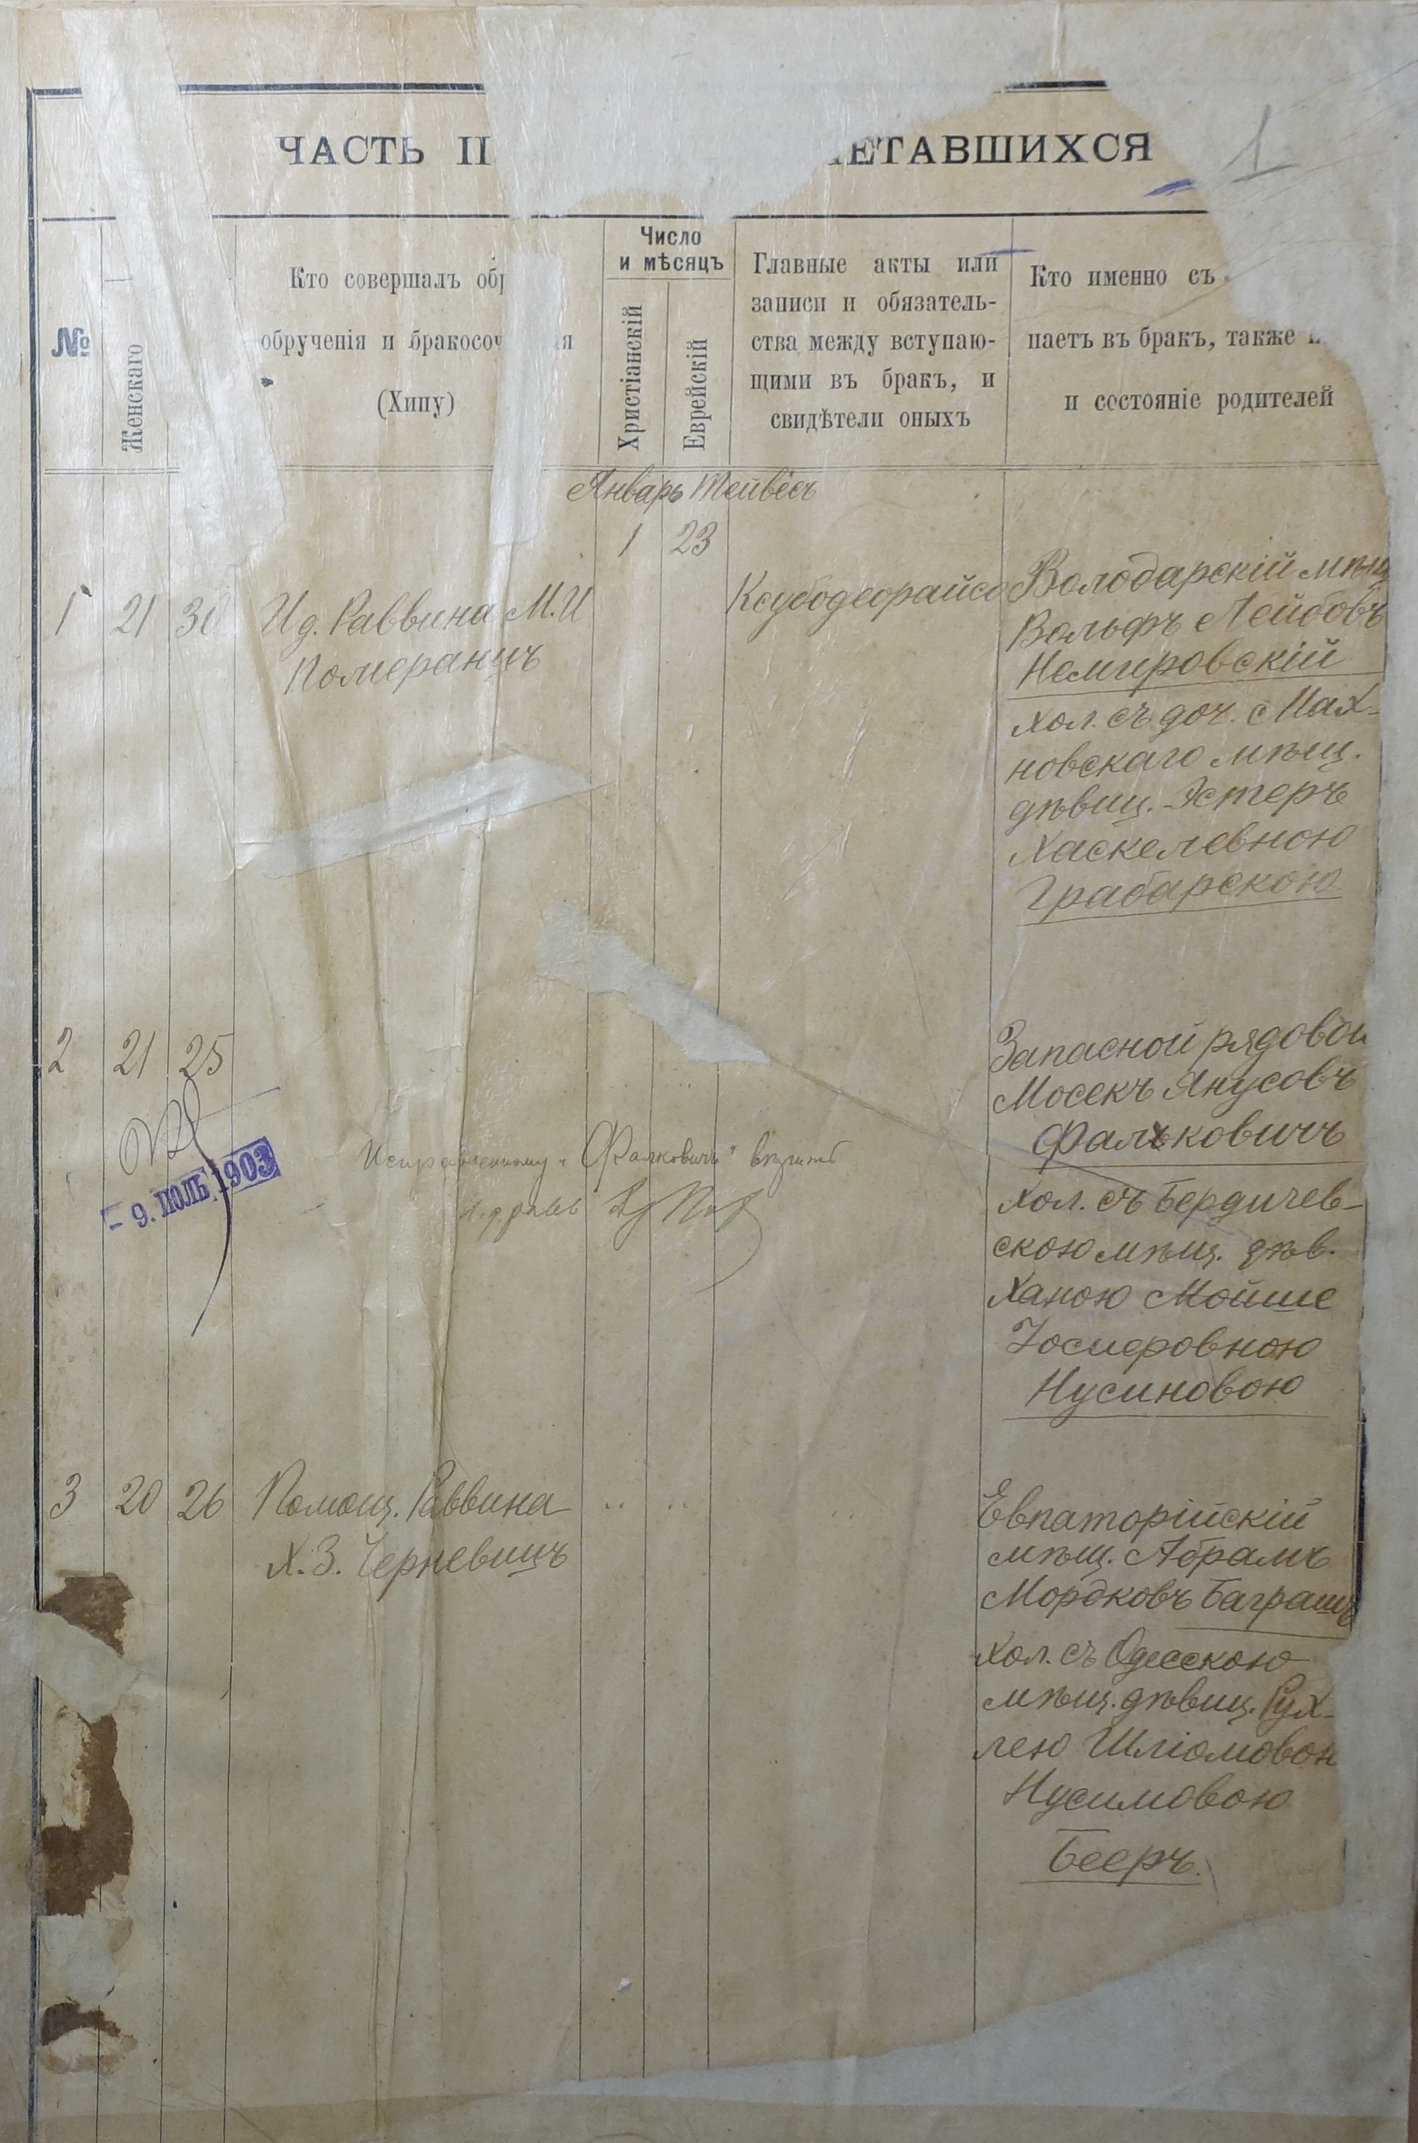 1
ЧАСТЬ II ЕТАВШИХСЯ
№
Женскаго
Кто совершалъ об
обрученія и бракосоч я
(Хипу)
Число
и мѣсяцъ
Христіанскій
Еврейскій
Главные акты или
записи и обязатель-
ства между вступаю-
щими въ бракъ, и
свидѣтели оныхъ
Кто именно съ
паетъ въ бракъ, также
и состояніе родителей
Январь Тейвесъ
1 23
1 21 30
И д. Раввина М.И
Померанцъ
Ксубодеорайсо
Володарскій мѣщ
Вольфъ Лейбовъ
Немировскій
хол. съ доч. Мах-
новскаго мѣщ.
дѣвиц. Эстеръ
Хаскелевною
Грабарскою
2 21 25
9. ІЮЛЬ 1903
Исправленному "Фалковичъ" вѣрить
Запасной рядовой
Мосекъ Янусовъ
Фальковичъ
хол. съ Бердичев-
скою мѣщ. дѣв.
Ханою Мойше
Іосиеровною
Нусиновою
3 20 26
Помощ. Раввина
Х.З. Черневицъ
" " "
Евпаторійскій
мѣщ. Абрамъ
Мордковъ Баграшъ
хол. съ Одесскою
мѣщ. дѣвиц. Рух-
лею Шліомовою
Нусимовою
Бееръ.